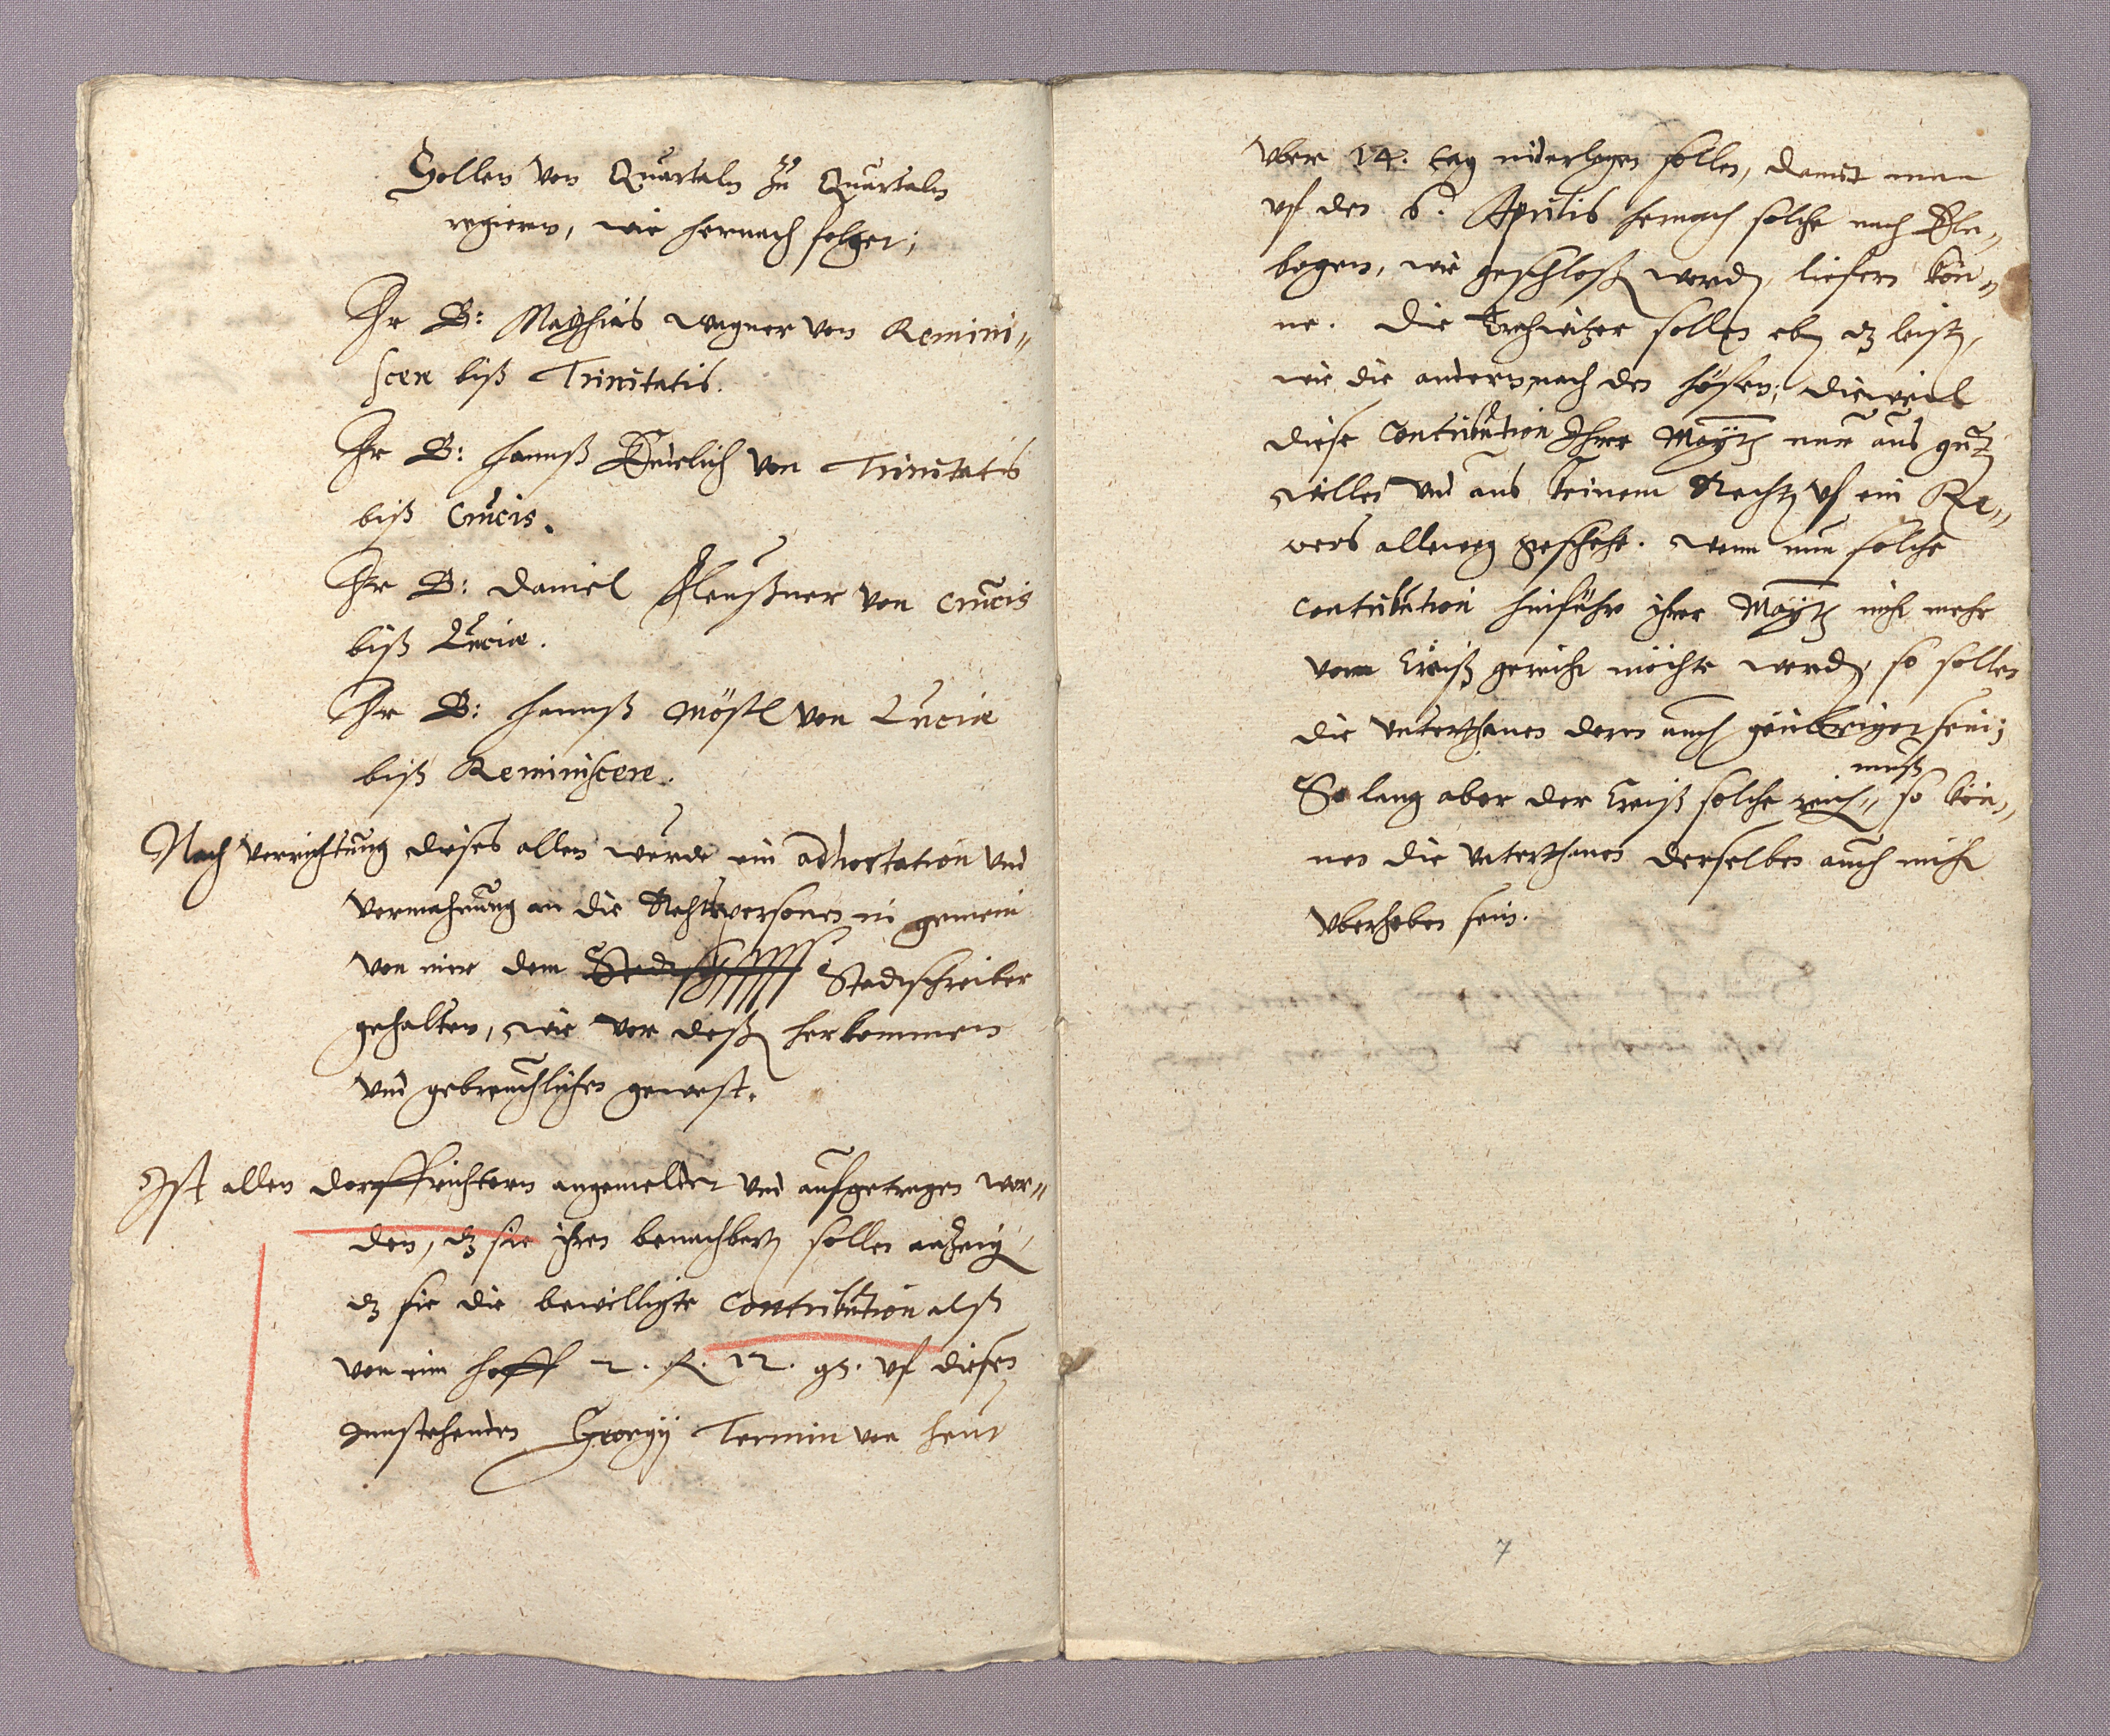 Sollen von Quartaln zu Quartaln
regiern, wie hernach folget;
Hr B: Matthias Wagner von Remini„
scere biß Trinitatis.
Hr B: Hannß von Trinitatis
biß Crucis.
Hr B: Daniel von Crucis
biß Luciæ.
Hr B: Hannß Möstl von Luciæ
biß Reminiscere.
Nach verrichtung dieses allen wurde ein adhortation vnd
vermahnung an die Rahtspersonen in gemein
von mir dem Stadtschreiber
gehalten, wie vor deß herkommen
vnd gebreuchlichen gewest.
Ist allen dorffrichtern angemeldet vnd aufgetragen wor„
den, dz sie ihren benachbert sollen anzeig,
dz sie die bewilligte Contribution alß
von eim hoff 2. fl. 12. gr. vf diesen
innstehenden Georgij Termin von heut
vber 14. tag niderlegen sollen, damit man
vf den 6. Aprilis hernach solche nach Eln„
bogen, wie geschloß word, liefern kön„
ne. Die sollen eben dz leist,
wie die andern, nach den höfen; dieweil
diese Contribution Ihrer Maytt nur aus gut
willen vnd aus keinem Recht vf ein Re„
vers alleweg geschehe. Wenn nun solche
Contribution hinführo ihrer Maytt nicht mehr
vom Creiß gereicht möchte werd, so sollen
die vnterthanen deren auch geübriget sein;
muß
So lang aber der Creiß solche reich„ so kön„
nen die vnterthanen derselben auch nicht
vberhoben sein.
7